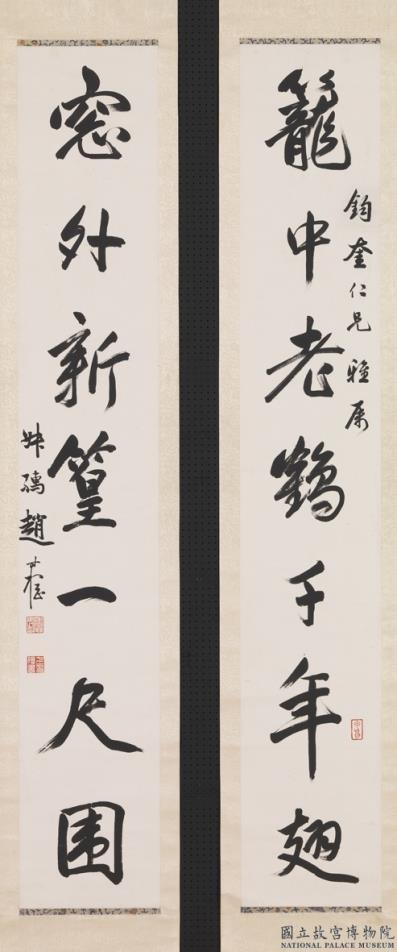 鈞奎仁兄雅属
籠中老鶴千年翅
窓外新篁一尺围
叔孺趙時棡
國立故宮博物院
NATIONAL PALACE MUSEUM